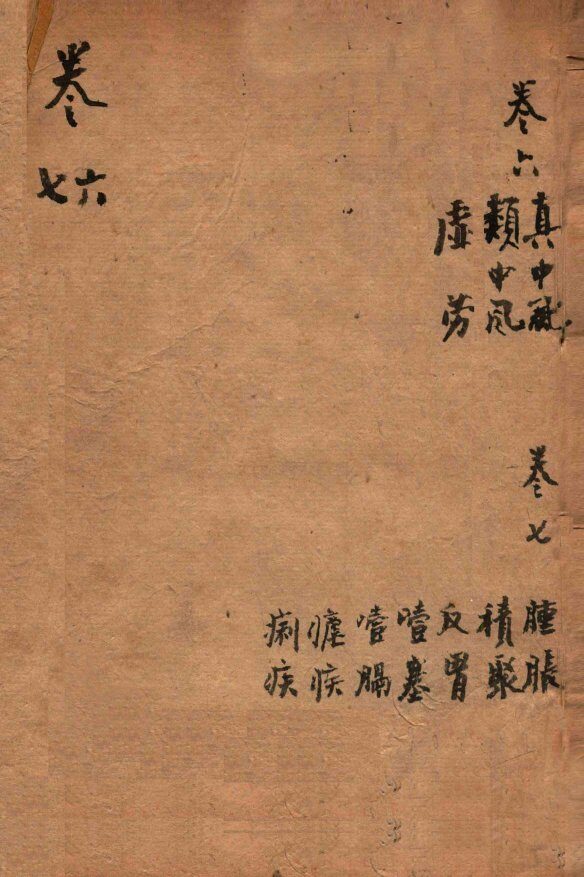 卷六
真中風
類中風
虛勞
卷七
腫脹
積聚
反胃
噎塞
噎膈
瘧疾
痢疾
卷
六
七